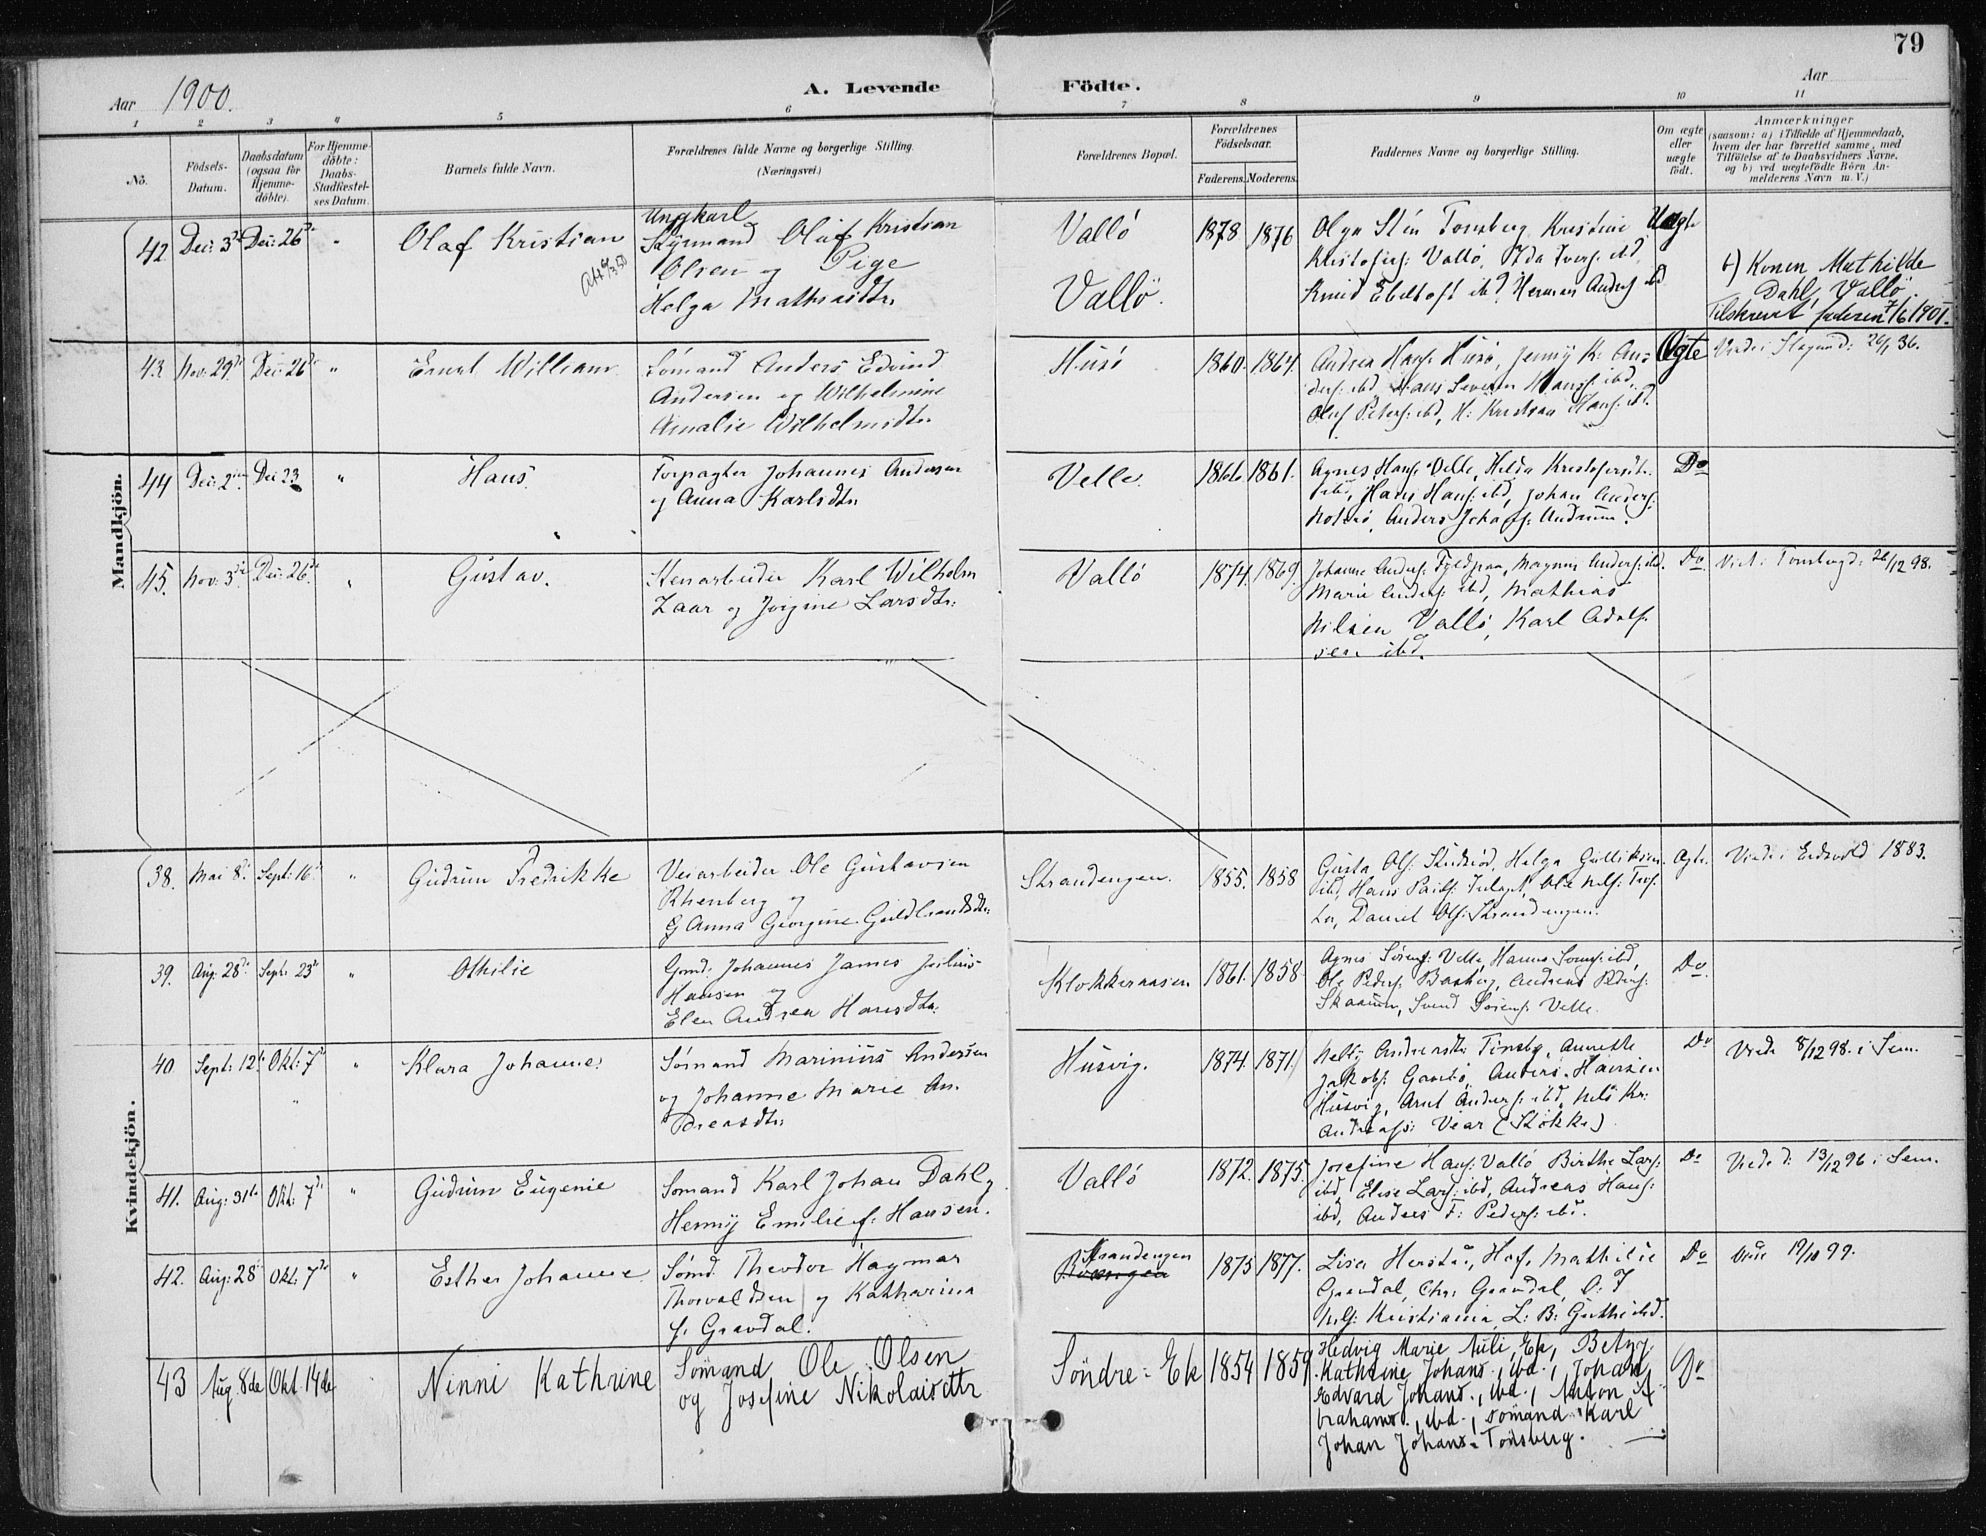 79
Aar 1900.
A. Levende Födte.
Aar
1 2 3 4 5 6 7 8 9 10 11
No.
Födsels-Datum.
Daabsdatum (ogsaa for Hjemme-döbte).
For Hjemme-döbte: Daabs-Stadfæstel-ses Datum.
Barnets fulde Navn.
Forældrenes fulde Navne og borgerlige Stilling. (Næringsvei.)
Forældrenes Bopæl.
Forældrenes Födselsaar.
Faderens. Moderens.
Faddernes Navne og borgerlige Stilling.
Om ægte eller uægte födt.
Anmærkninger
(saasom: a) i Tilfælde af Hjemmedaab,
hvem der har forrettet samme, med
Tilföielse af to Daabsvidners Navne,
og b) ved uægtefödte Börn An-
melderens Navn m. V.)
Mandkjön.
42 Dec: 3die Dec: 26de "
Olaf Kristian
Ungkarl
Olaf Kristian
Olsen og Pige
Helga Mathisdtr.
Vallö
Vallö.
1878 1876
Olga Tönsberg Kristine
Vallö, Ida Ivers: ibd,
Knud Ebeltoft ibd, Herman Anders: ibd
Uægte
b) Konen Mathilde
Dahl, Vallö.
Tilskrevet faderen 7/6 1901.
43 Nov: 29de Dec: 26de "
Ernst William
Sömand Anders Edvind
Andersen og Wilhelmine
Amalie Wilhelmsdtr.
Husö
1860. 1864.
Andrea Hans: Husö, Jenny K: An-
ders: ibd Hans Severin Hans: ibd,
Olaf Peters: ibd, H: Kristian Hans: ibd.
Ægte
26/1 36.
44 Dec: 2den Dec 23 "
Hans.
Forpagter Johannes Andersen
og Anna Karlsdtr.
Velle.
1866. 1861.
Agnes Hans: Velle, Hilda Kristofersdtr.
ibd, Hans Hans: ibd, Johan Anders:
Anders
Do
45. Nov: 3die Dec: 26de. "
Gustav.
Stenarbeider Karl Wilhelm
Zaar og Jörgine Larsdtr:
Vallö
1874. 1869.
Johanne Anders: Magnus Anders: ibd.
Marie Anders: ibd, Mathias
Nilsen Vallö, Karl Adolf-
sen ibd.
Do.
Viet i Tönsberg d: 26/12 98.
Kvindekjön.
38. Mai 8de Sept: 16de "
Gudrun Fredrikke
Veiarbeider Ole Gustavsen
Rhenberg og
Anna Georgine Guldbrandsdtr.
Strandengen.
1855. 1858
Ols: Helga Gulliksen
ibd, Hans Ole Nils:
Daniel Ols: Strandengen.
Ægte.
Viede i Eidsvold 1883.
39. Aug: 28de Sept: 23de "
Othilie
Gmd: Johannes James Julius
Hansen og
Elen Andrea Hansdtr.
Klokkeraasen
1861. 1858.
Agnes Sörens: Velle Hanna Sörens: ibd,
Ole Peders: Andreas Peders:
Svend Sörens: Velle.
Do.
40 Sept: 12te Okt: 7de "
Klara Johanne.
Sömand Marinius Andersen
og Johanne Marie An-
dreasdtr:
Husvig.
1874. 1871.
Nelly Andreasdtr: Annette
Jakobs: Anders Hansen
Husvig, Arnt Anders: ibd, Nils Kr:
Andreass: Vear (Stokke).
Do
Viede 8/12 98. i Sem.
41. Aug: 31te Okt: 7de "
Gudrun Eugenie
Sömand Karl Johan Dahl og
Henny Emilie f: Hansen.
Vallö
1872. 1875.
Josefine Hans: Vallö Birthe Lars:
ibd, Elise Lars: ibd, Andreas Hans:
ibd, Anders F: Peders: ibd.
Do
Viede d: 13/12 96 i Sem.
42. Aug: 28de Okt: 7de "
Esther Johanne.
Sömd. Theodor Hagmar
Thorvaldsen og Katharina
f: Gravdal.
Strandengen
1875 1877.
Lisa Mathilde
Gravdal, Chr: Gravdal, O: T
Kristiania, L: B: ibd.
Do
Viede 19/10 99.
43 Aug. 8de Okt 14de
Ninni Kathrine
Sömand Ole Olsen
og Josefine Nikolaisdtr
Söndre-Ek
1854 1859.
Hedvig Marie Auli, Ek, Betzy
Kathrine Johans., ibd., Johan
Edvard Johans., ibd., Anton A-
brahams., ibd., sömand Karl
Johan Johans. Tönsberg.
Do